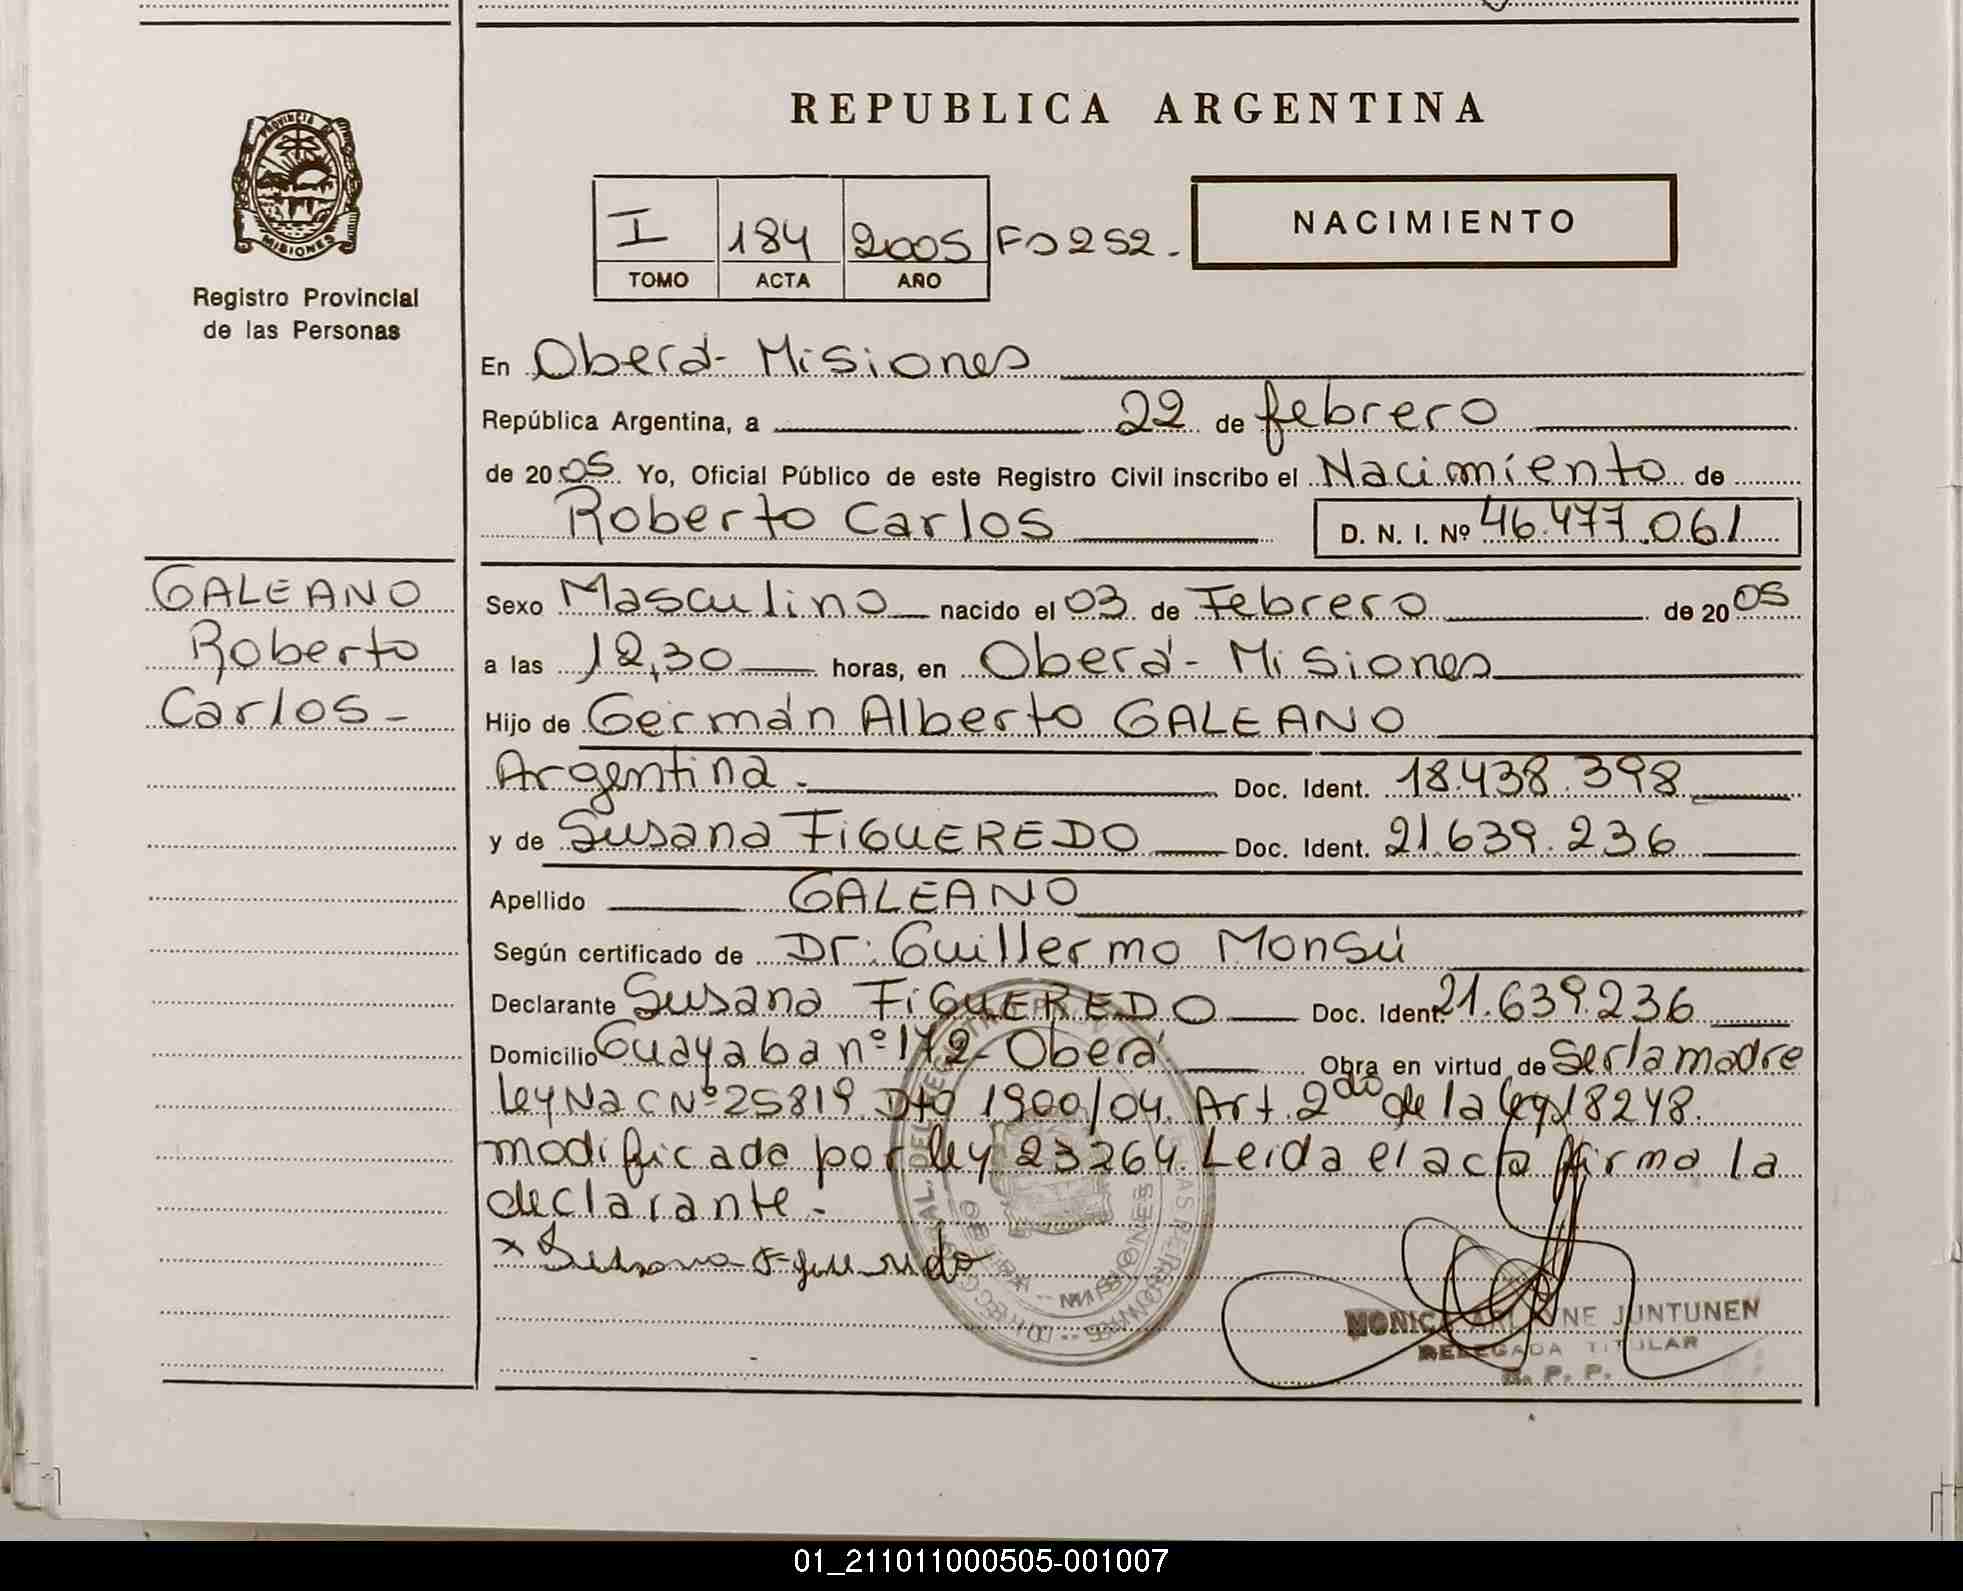 REPUBLICA ARGENTINA
PROVINCIA DE
MISIONES
Registro Provincial
de las Personas
I 184 2005 Fo 252.
TOMO ACTA AÑO
NACIMIENTO
En Oberá - Misiones
República Argentina, a 22 de febrero
de 2005 Yo, Oficial Público de este Registro Civil inscribo el Nacimiento de
Roberto Carlos D. N. I. Nº 46.477.061
GALEANO
Roberto
Carlos -
Sexo Masculino nacido el 03 de Febrero de 2005
a las 12,30 horas, en Oberá - Misiones
Hijo de Germán Alberto GALEANO
Argentina. Doc. Ident. 18.438.398
y de Susana FiGUEREDO Doc. Ident. 21.639.236
Apellido GALEANO
Según certificado de Dr: Guillermo Monsú
Declarante Susana FiGUEREDO Doc. Ident. 21.639.236
Domicilio Guayaba nº 172 - Oberá Obra en virtud de Ser la madre
Ley Nac Nº 25819 Dto 1900/04. Art. 2do de la ley 18248.
modificado por ley 23264. Leída el acta firma la
declarante.
x Susana Figueredo
MONICA ARLYNE JUNTUNEN
DELEGADA TITULAR
R. P. P.
01_211011000505-001007